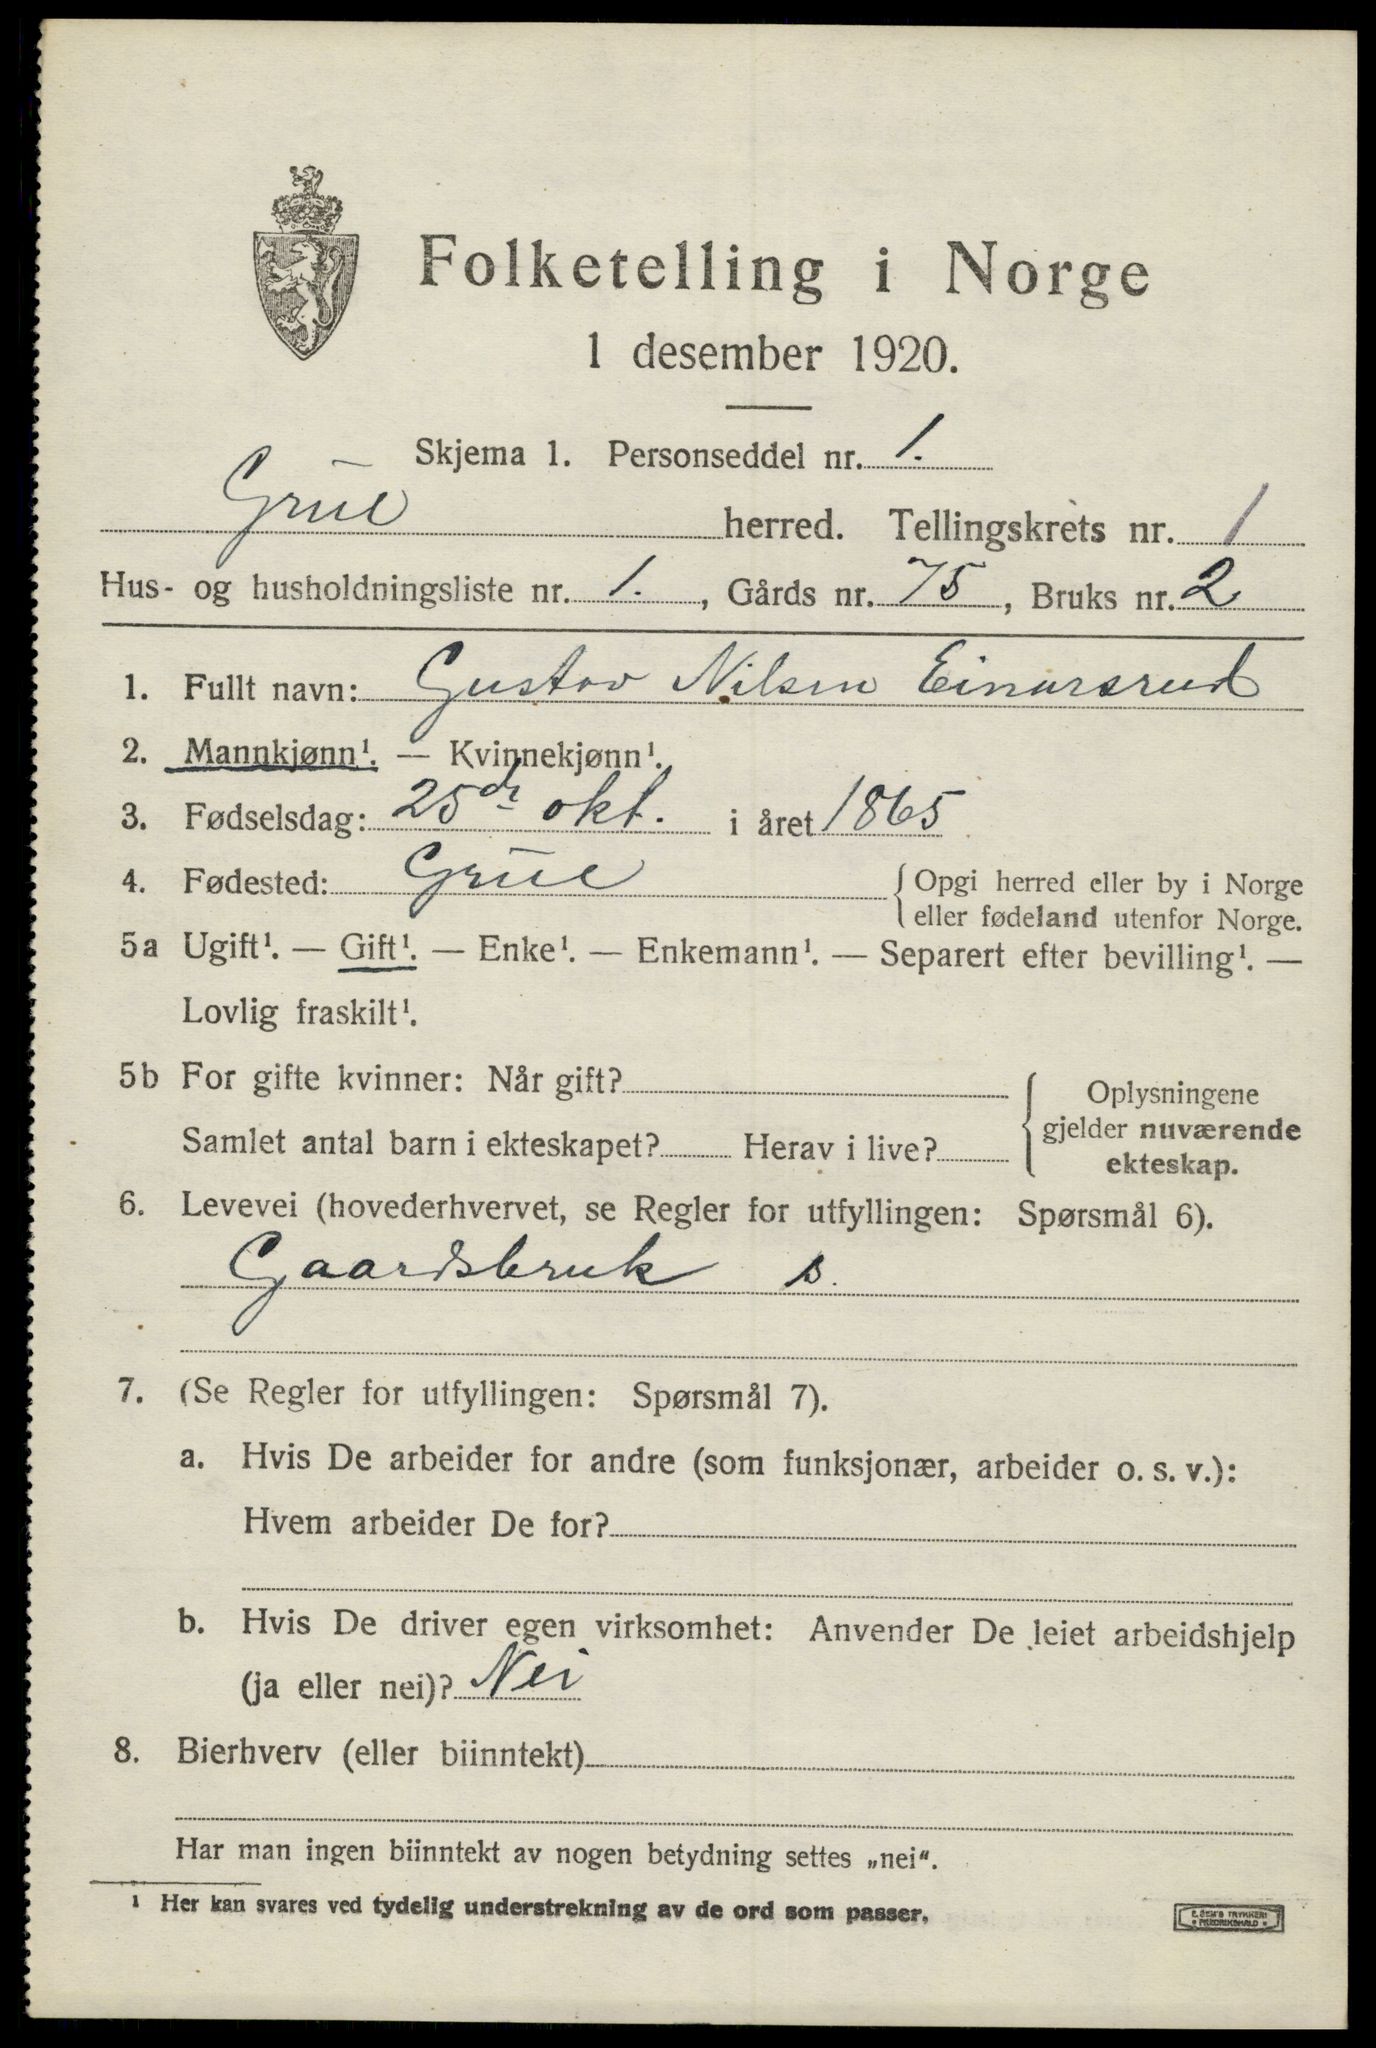 Folketelling i Norge
1 desember 1920.
Skjema 1. Personseddel nr. 1.
Grue herred. Tellingskrets nr. 1
Hus- og husholdningsliste nr. 1. , Gårds nr. 75 , Bruks nr. 2
1. Fullt navn: Gustav Nilsen Einarsrud
2. Mannkjønn¹. — Kvinnekjønn¹.
3. Fødselsdag: 25de okt. i året 1865
4. Fødested: Grue { Opgi herred eller by i Norge
eller fødeland utenfor Norge.
5a Ugift¹. — Gift¹. — Enke¹. — Enkemann¹. — Separert efter bevilling¹. —
Lovlig fraskilt¹.
5b For gifte kvinner: Når gift? { Oplysningene
Samlet antal barn i ekteskapet? Herav i live? gjelder nuværende
ekteskap.
6. Levevei (hovederhvervet, se Regler for utfyllingen: Spørsmål 6).
Gaardsbruk s.
7. (Se Regler for utfyllingen: Spørsmål 7).
a. Hvis De arbeider for andre (som funksjonær, arbeider o. s. v.):
Hvem arbeider De for?
b. Hvis De driver egen virksomhet: Anvender De leiet arbeidshjelp
(ja eller nei)? Nei
8. Bierhverv (eller biinntekt)
Har man ingen biinntekt av nogen betydning settes „nei“.
¹ Her kan svares ved tydelig understrekning av de ord som passer.
E. SEM'S TRYKKERI
• FREDRIKSHALD •